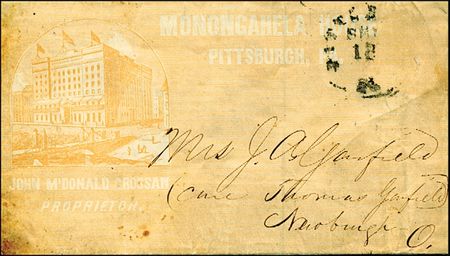 MONONGAHELA
PITTSBURGH,
18
JOHN McDONALD CROSSAN
PROPRIETOR.
Mrs J. A. Garfield
(care Thomas Garfield)
Newburgh
O.